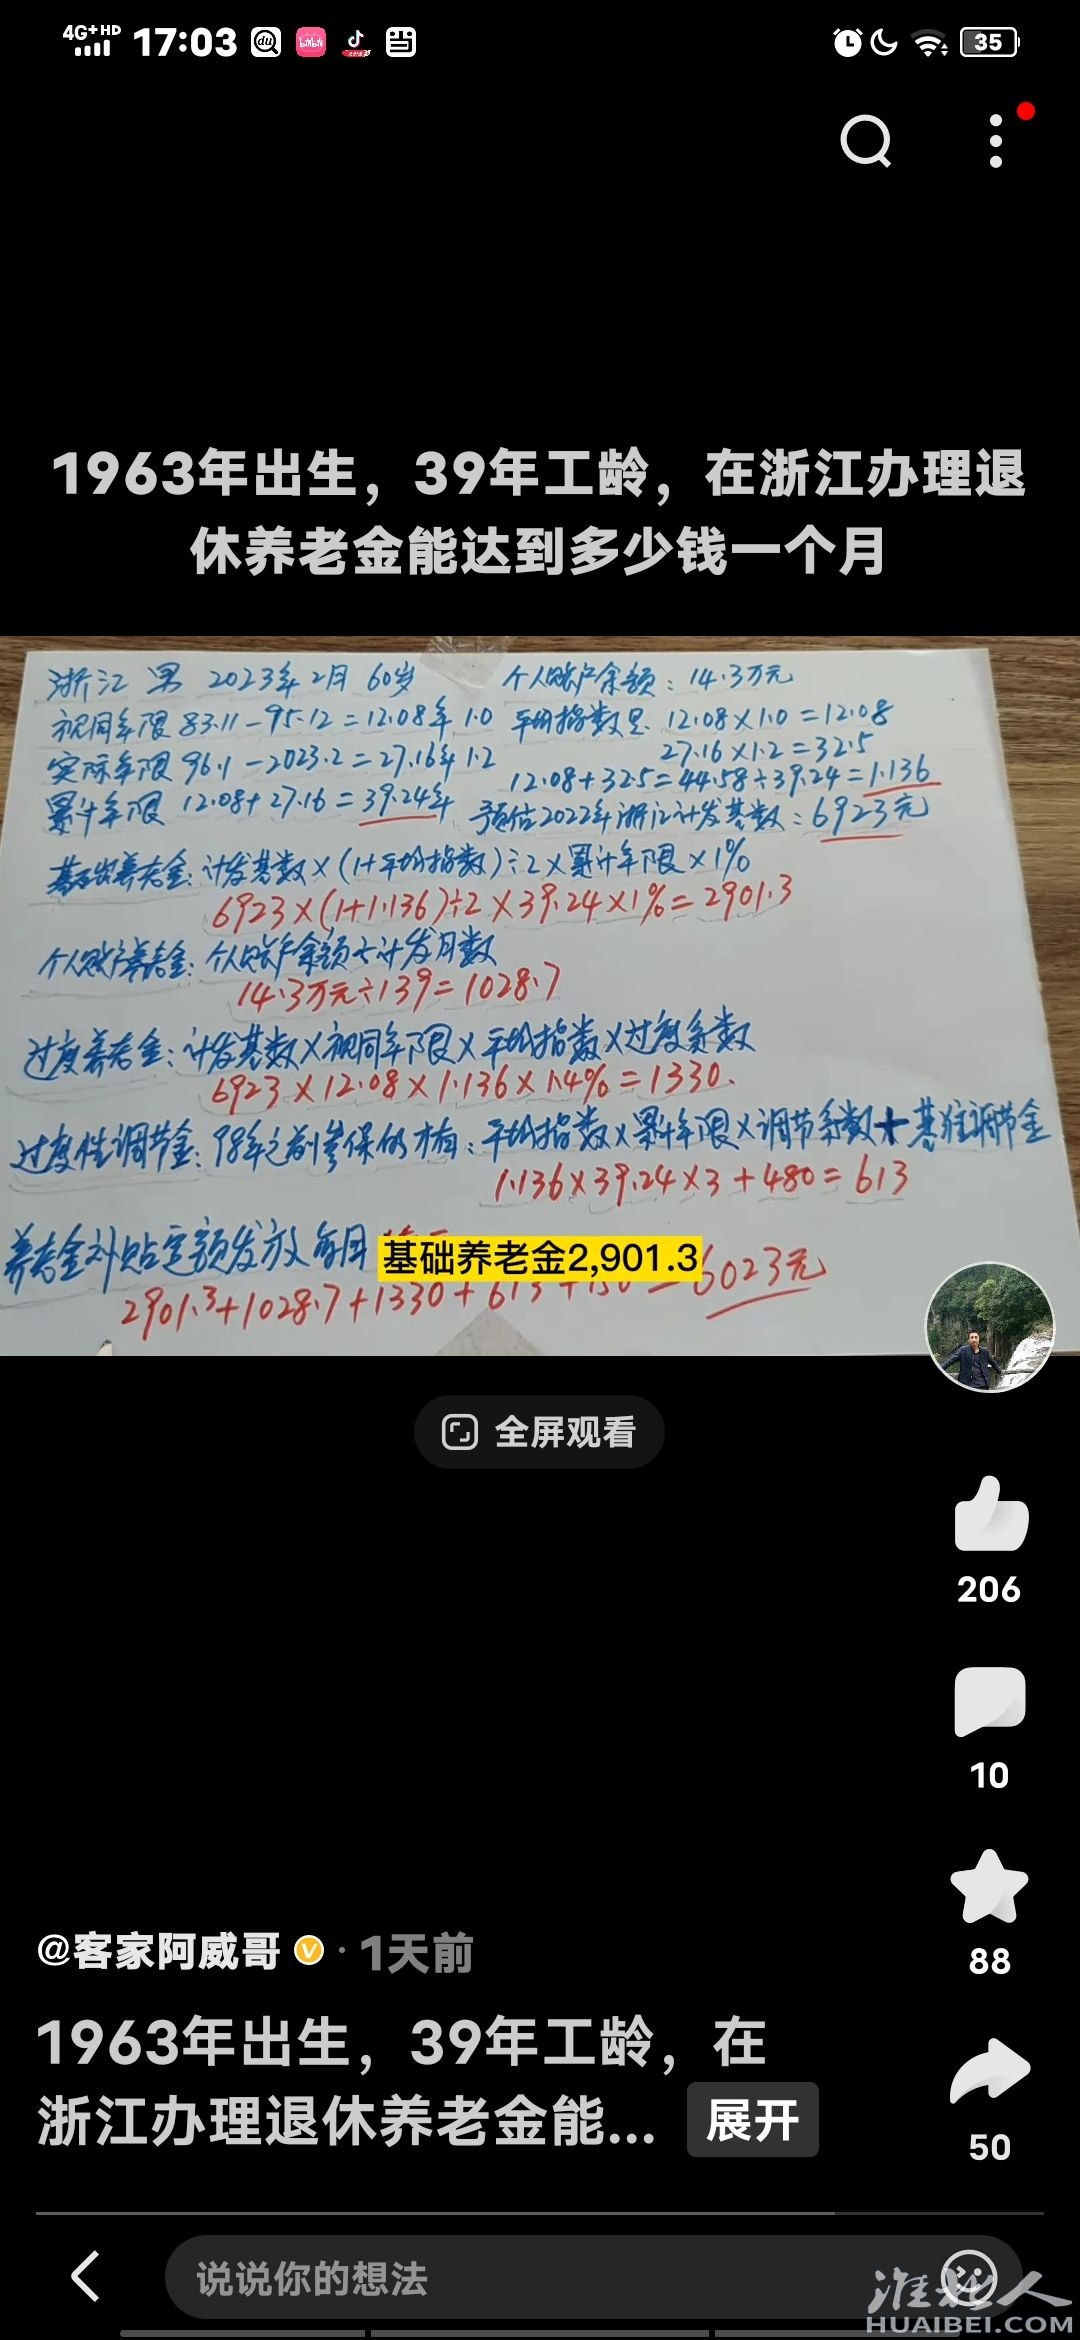 4G+HD 17:03 35
1963年出生，39年工龄，在浙江办理退
休养老金能达到多少钱一个月
浙江 男 2023年2月 60岁 个人账户余额：14.3万元
视同年限 83.11-95.12=12.08年 1.0 平均指数是 12.08×1.0=12.08
实际年限 96.1-2023.2=27.16年 1.2 27.16×1.2=32.5
12.08+32.5=44.58÷39.24=1.136
累计年限 12.08+27.16=39.24年 预估2022年浙江计发基数：6923元
基础养老金：计发基数×(1+平均指数)÷2×累计年限×1%
6923×(1+1.136)÷2×39.24×1%=2901.3
个人账户养老金：个人账户余额÷计发月数
14.3万元÷139=1028.7
过度养老金：计发基数×视同年限×平均指数×过度系数
6923×12.08×1.136×1.4%=1330.
过度性调节金：98年之前参保的有：平均指数×累计年限×调节系数+基准调节金
1.136×39.24×3+480=613
养老金补贴定额发放每月
基础养老金2,901.3
2901.3+1028.7+1330+613+150=6023元
全屏观看
206
10
88
50
@客家阿威哥 · 1天前
1963年出生，39年工龄，在
浙江办理退休养老金能... 展开
说说你的想法
淮北人
HUAIBEI.COM